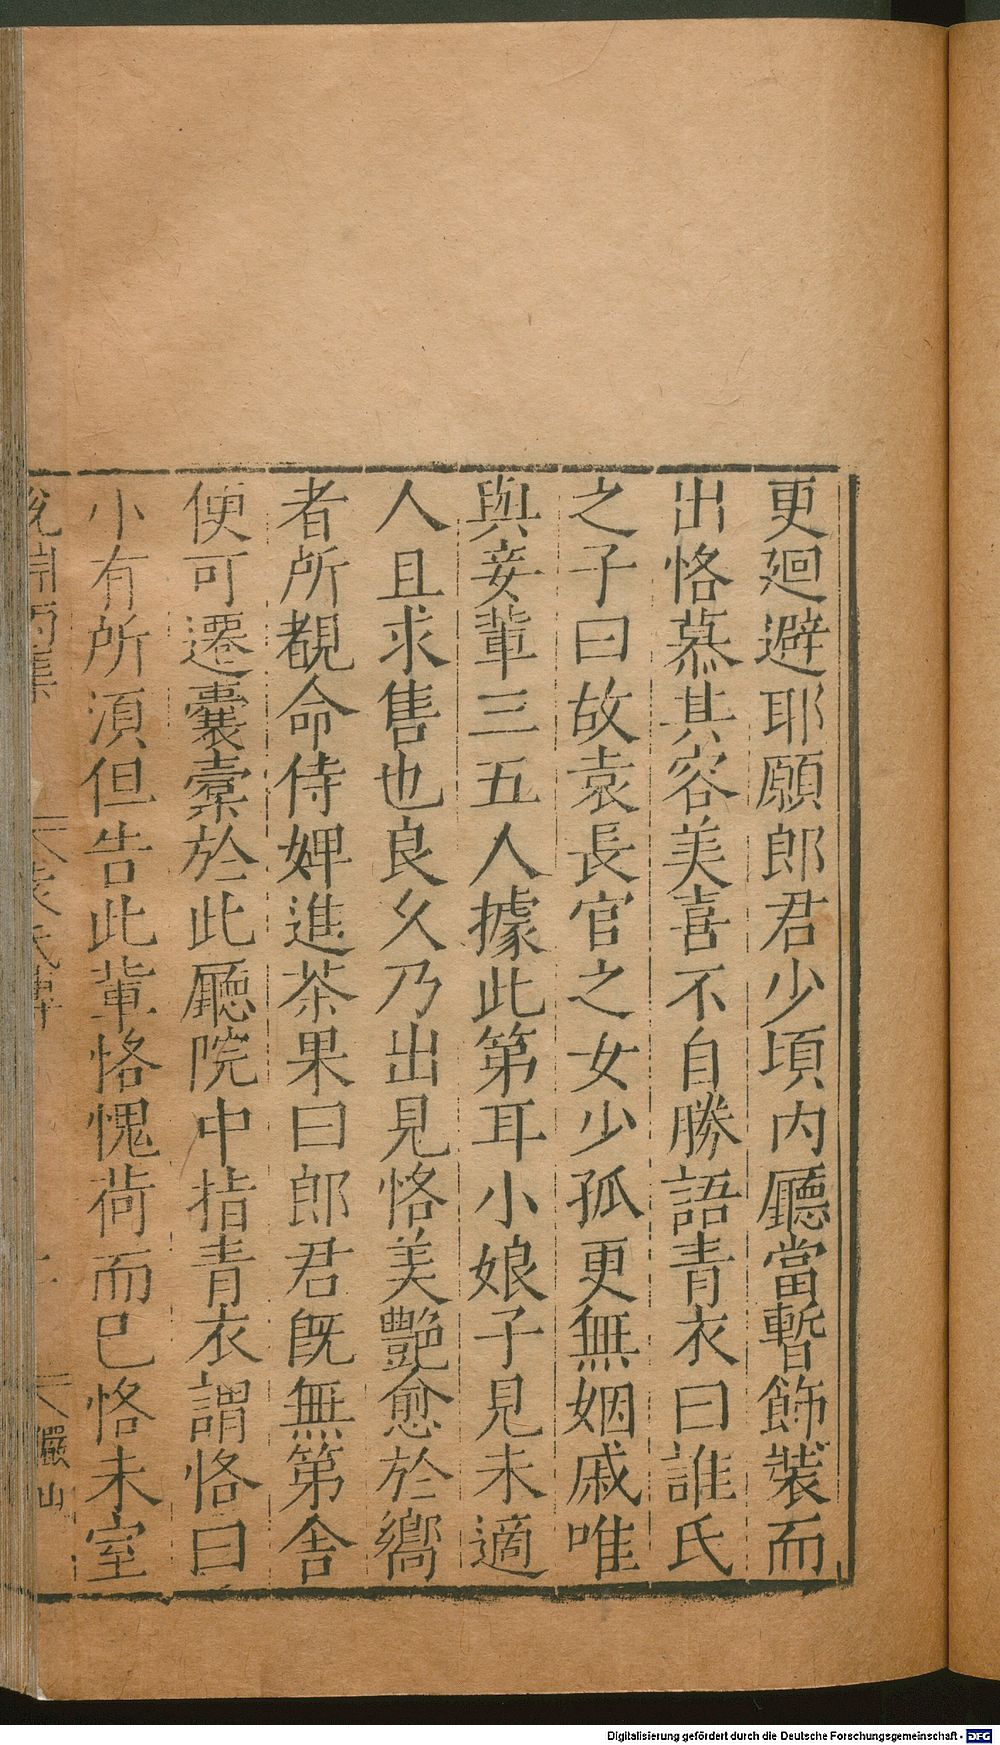 更廻避耶願郎君少頃内廳當暫飾裝而
出恪慕其容美喜不自勝語青衣曰誰氏
之子曰故袁長官之女少孤更無姻戚唯
與妾輩三五人據此第耳小娘子見未適
人且求售也良久乃出見恪美艷愈於嚮
者所覩命侍婢進茶果曰郎君既無第舍
便可遷囊橐於此廳院中指青衣謂恪曰
小有所湏但告此輩恪愧荷而已恪未室
說淵丙集
袁氏傳
儼山
Digitalisierung gefördert durch die Deutsche Forschungsgemeinschaft - DFG